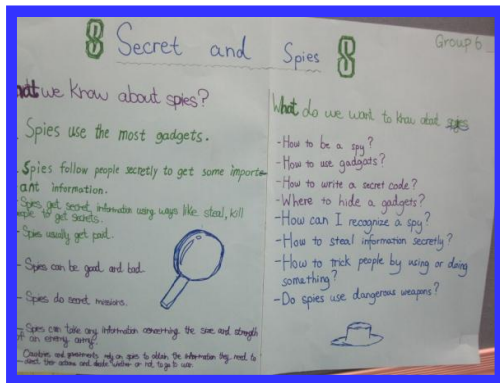 8 Secret and Spies 8
Group 6
What we know about spies?
Spies use the most gadgets.
Spies follow people secretly to get some import-
ant information.
- Spies get secret information using ways like steal, kill
people to get secrets.
- Spies usually get paid.
- Spies can be good and bad.
- Spies do secret missions.
- Spies can take any information concerning the size and strength
of an enemy army.
- Countries and governments rely on spies to obtain the information they need to
direct their actions and decide whether or not to go to war.
What do we want to know about spies
- How to be a spy?
- How to use gadgets?
- How to write a secret code?
- Where to hide a gadgets?
- How can I recognize a spy?
- How to steal information secretly?
- How to trick people by using or doing
something?
- Do spies use dangerous weapons?